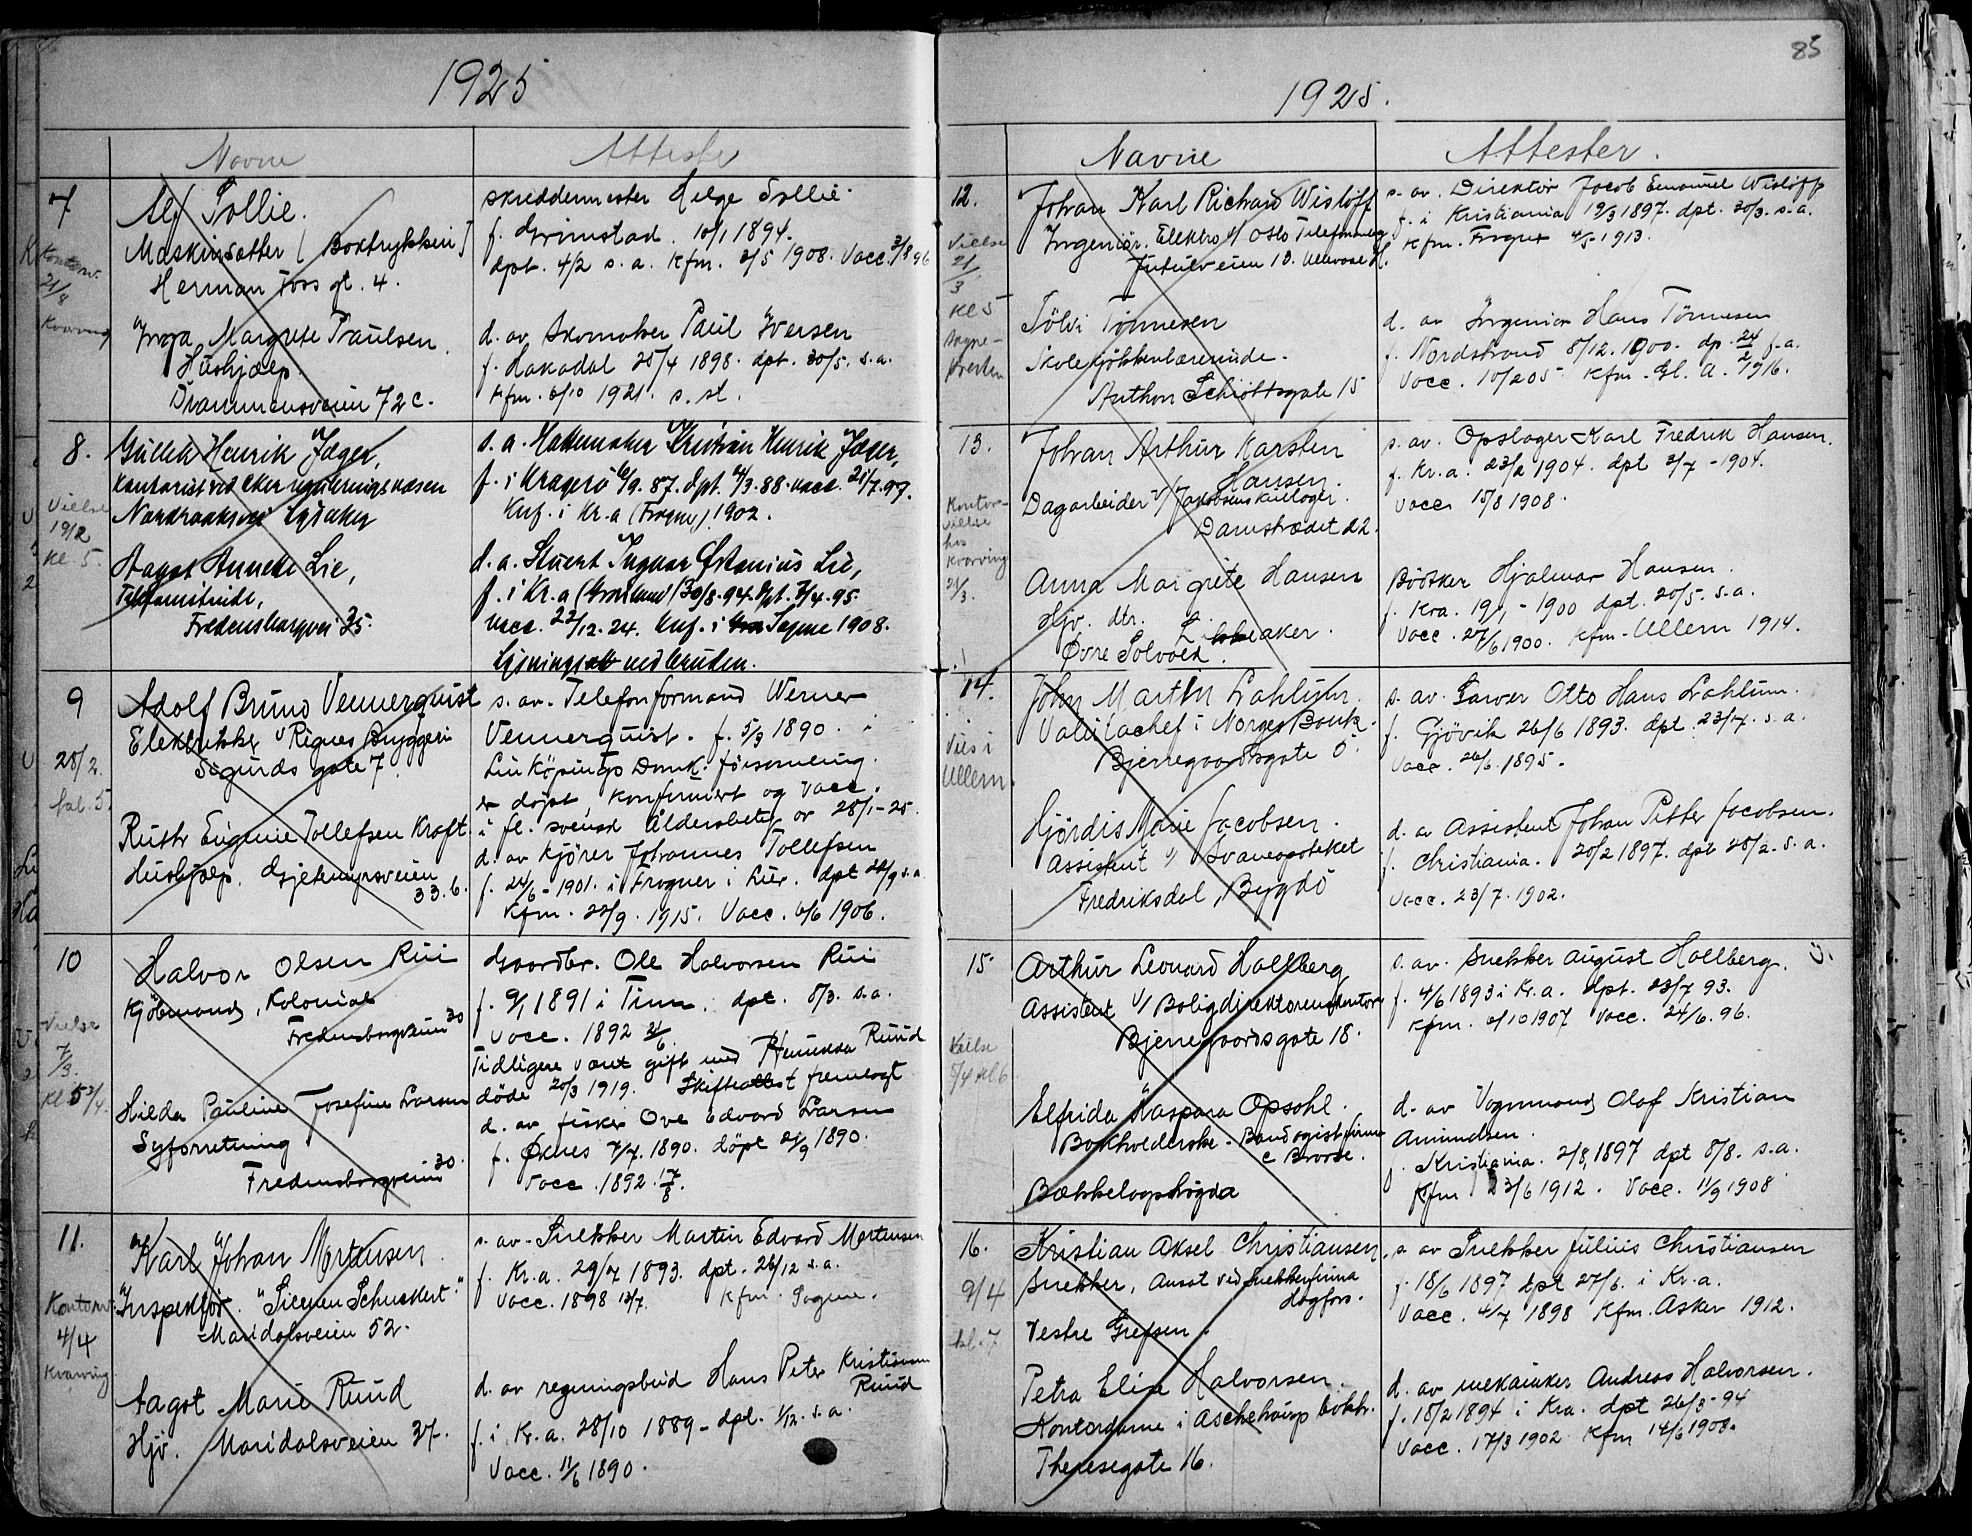 1925
Navne Attester
7
Alf Tollie. skreddermester Helge Tollie
Maskinsætter ( Boktrykkeri ) f. Grimstad. 10/1 1894.
Herman Foss gt. 4. dpt. 4/2 s. a. Kfm. 3/5 1908. Vacc. 3/8 96
Kontorv.
21/2
Kvarving
Inga Margrete Paulsen d. av Skomaker Paul Iversen
Hushjælp. f. Hakadal 25/4 1898. dpt. 30/5. s. a.
Drammensveien 72 c. Kfm. 6/10 1921. s. st.
8.
Gullik Henrik Jæger, s. a. Hattemaker Kristian Henrik Jæger,
Kontorist ved Aker reguleringsvæsen f. i Kragerø 6/9. 87. dpt. 4/3. 88. vacc. 21/7. 97.
Lysaker Knf. i Kr.a (Frogner) 1902.
Vielse
19/2
Kl. 5.
Aagot Annette Lie, d. a. Stuert Ingvar Østenius Lie,
Telefonistinde, f. i Kr.a (Grønland) 30/8. 94. dpt. 7/4. 95.
Fredensborgvei 35. vacc. 22/12. 24. Knf. i Sagene 1908.
Lysningsatt. ved bruden.
9
Adolf Bruno Vennerquist s. av. Telefonformand Werner
Elektriker v/ Ringnes Bryggeri Vennerquist. f. 5/3 1890. i
Sigurds gate 7. Linköpings Domk. församling.
er døpt, konfirmert og vacc.
28/2.
kl. 5.
Ruth Eugenie Tollefsen Kraft i fl. svensk Åldersbetyg av 28/1-25.
Hushjælp. Gjetemyrsveien d. av Kjører Johannes Tollefsen
33. b. f. 24/6 - 1901. i Frogner i Lier. dpt 22/9 s. a.
Kfm. 22/9. 1915. Vacc. 6/6 1906.
10
Halvor Olsen Rui Gaardbr. Ole Halvorsen Rui
Kjøbmand, Kolonial f. 9/1 1891 i Tinn. dpt. 8/3. s. a.
Fredensborgveien 30 Vacc. 1892 21/6.
Tidligere været gift med Ruud
Vielse
7/3.
Kl. 5 3/4.
Hilda Pauline Josefine Larsen døde 20/3 1919. Skifteattest fremlagt
Syforretning d. av fisker Ove Edvard Larsen
Fredensborgveien 30. f. Øksnes 7/7. 1890. døpt 21/9 1890.
Vacc. 1892. 17/8.
11.
Karl Johan Mortensen. s. av. Snekker Martin Edvard Mortensen
Inspektør. "Siemen Schuckert." f. Kr.a. 29/7 1893. dpt. 26/12 s. a.
Maridalsveien 52. Vacc. 1898 13/7. Kfm. Sagene.
Kontorv.
4/4
Kvarving
Aagot Marie Ruud d. av regningsbud Hans Peter Kristiansen Ruud
Hjv. Maridalsveien 37. f. i Kr.a. 28/10 1889 - dpt. 1/12. s. a.
Vacc. 11/6 1890.
85
1925.
Navne Attester.
12.
Johan Karl Richard Wisløff s. av. Direktør Jacob Emanuel Wisløff
Ingeniør. Elektro v/ Oslo Telefonanlæg f. i Kristiania 19/3 1897. dpt. 30/3. s. a.
Jutulveien 10. Ullevaal H. Kfm. Frogner 4/5 1913.
Vielse
21/3
Kl 5
Sogne-
presten
Sölvi Tønnesen d. av Ingeniør Hans Tønnesen
Skolekjøkkenlærerinde. f. Nordstrand 8/12. 1900. dp. 24/2 f. a.
Anthon Schiøttsgate 15 Vacc. 10/2 05. Kfm. Gl. A. 1916.
13.
Johan Arthur Karsten s. av. Opslager Karl Fredrik Hansen.
Hansen. f. Kr.a. 23/2 1904. dpt 3/7 - 1904.
Dagarbeider v/ Jakobsens kullager. Vacc 15/8 1908.
Damstrædet 22.
Kontor-
vielse
hos
Kvarving
21/3.
Anna Margrete Hansen Bødker Hjalmar Hansen.
Hjv. dtr. f. Kra. 19/1 - 1900 dpt. 20/5. s. a.
Øvre Solvold. Lysaker. Vacc. 27/6 1900. Kfm. Ullern 1914.
14.
John Martin Lahlum. s. av. Garver Otto Hans Lahlum.
Valutachef i Norges Bank. f. Gjøvik 26/6 1893. dpt. 23/7. s. a.
Bjerregaardsgate 5. Vacc. 26/6. 1895.
Vies i
Ullern.
Hjördis Marie Jacobsen. d. av Assistent Johan Petter Jacobsen.
Assistent v/ Svaneapoteket f. Christiania. 20/2 1897. dpt 28/2. s. a.
Fredriksdal, Bygdö Vacc. 23/7. 1902.
15
Arthur Leonard Hallberg s. av. Snekker August Hallberg.
Assistent v/ Boligdirektørens kontor f. 4/6 1893 i Kr.a. dpt. 23/7 93.
Bjerregaardsgate 18. Kfm. 6/10 1907 Vacc. 24/6. 96.
Vielse
7/4 kl 6
Elfrida Kaspara Opsahl. d. av Vognmand Olaf Kristian
Bokholderske - Bandagistfirma Amundsen.
C Brosse. f. Kristiania. 2/8, 1897 dpt 8/8. s. a.
Bækkelagshøgda Kfm 23/6 1912. Vacc. 11/9 1908
16.
Kristian Aksel Christiansen. s. av Snekker Julius Christiansen
Snekker, ansat ved Snekkerfirma f. 18/6 1897 dpt 27/6. i Kr.a.
Høgfors. Vacc. 4/7 1898 Kfm. Asker 1912.
Vestre Grefsen.
9/4
kl. 7
Petra Elise Halvorsen. d. av mekaniker Andreas Halvorsen.
Kontordame i Aschehoug bokh. f. 18/2 1894 i Kra. dpt 26/3 - 94
Theresegate 16. Vacc. 17/3 1902 Kfm 14/6 1908.